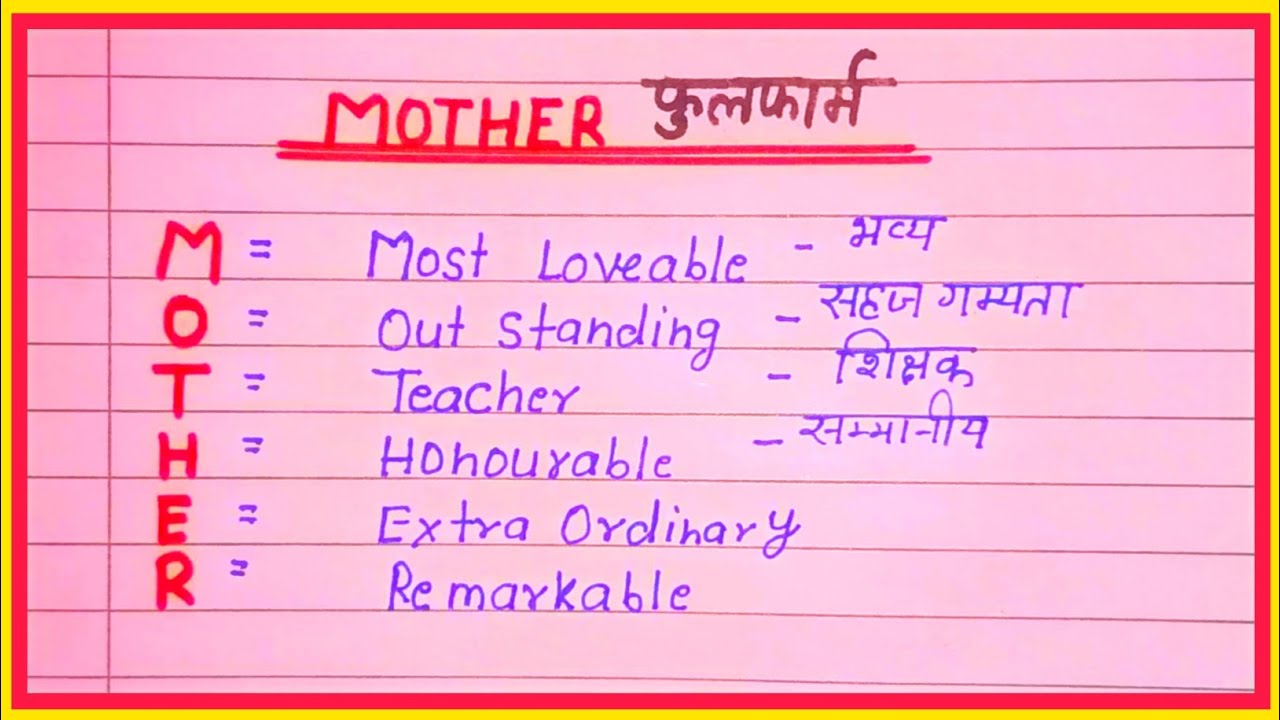 MOTHER फुलफार्म
M = Most Loveable - भव्य
O = Out Standing - सहज गम्यता
T = Teacher - शिक्षक
H = Honourable - सम्मानीय
E = Extra Ordinary
R = Remarkable